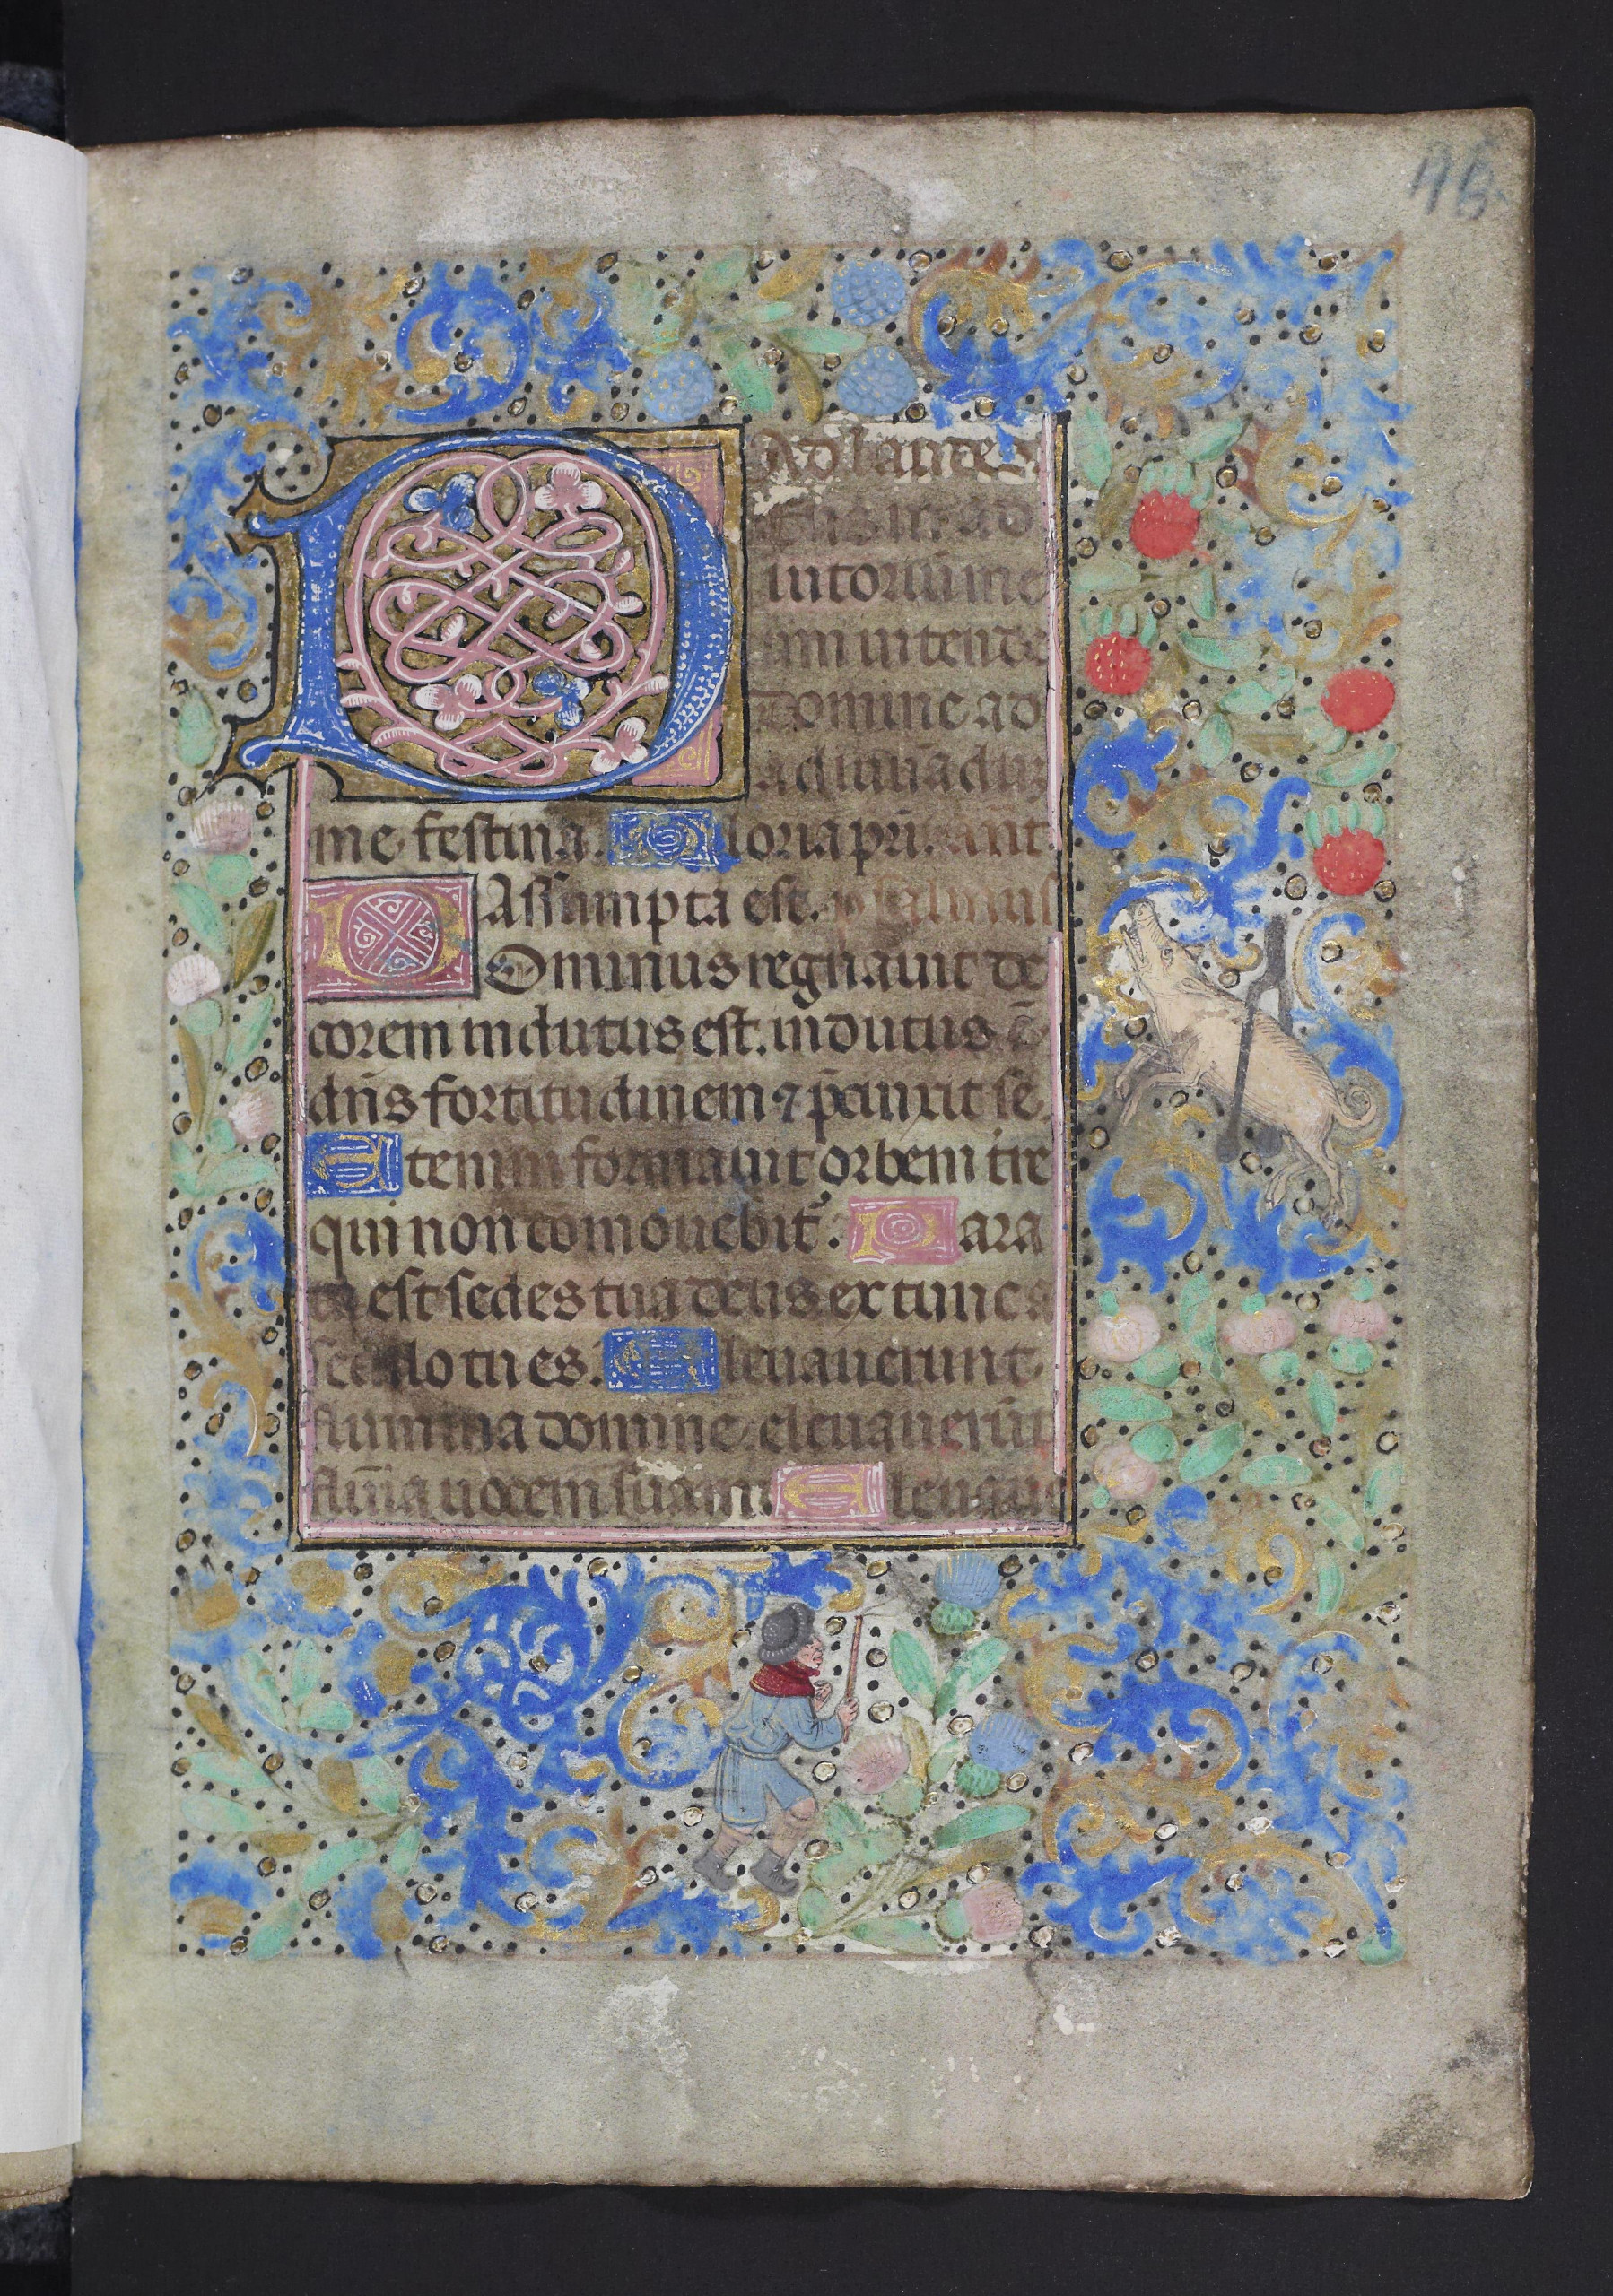 46
Ad laudes.
Deus in ad
iutoriū me
um intende
Domine ad
adiuuādū
me festina. Gloria pri. ant.
Assumpta est. psalmus
Dominus regnauit de
corem indutus est. indutus ē
dn̄s fortitudinem ⁊ p̄cinxit se
Etenim formauit orbem tre
qui non comouebit᷑. Para
ta est sedes tua deus ex tunc a
seculo tu es. Eleuauerunt
flumina domine eleuauerūt
flūīa uocem suam Eleuaue